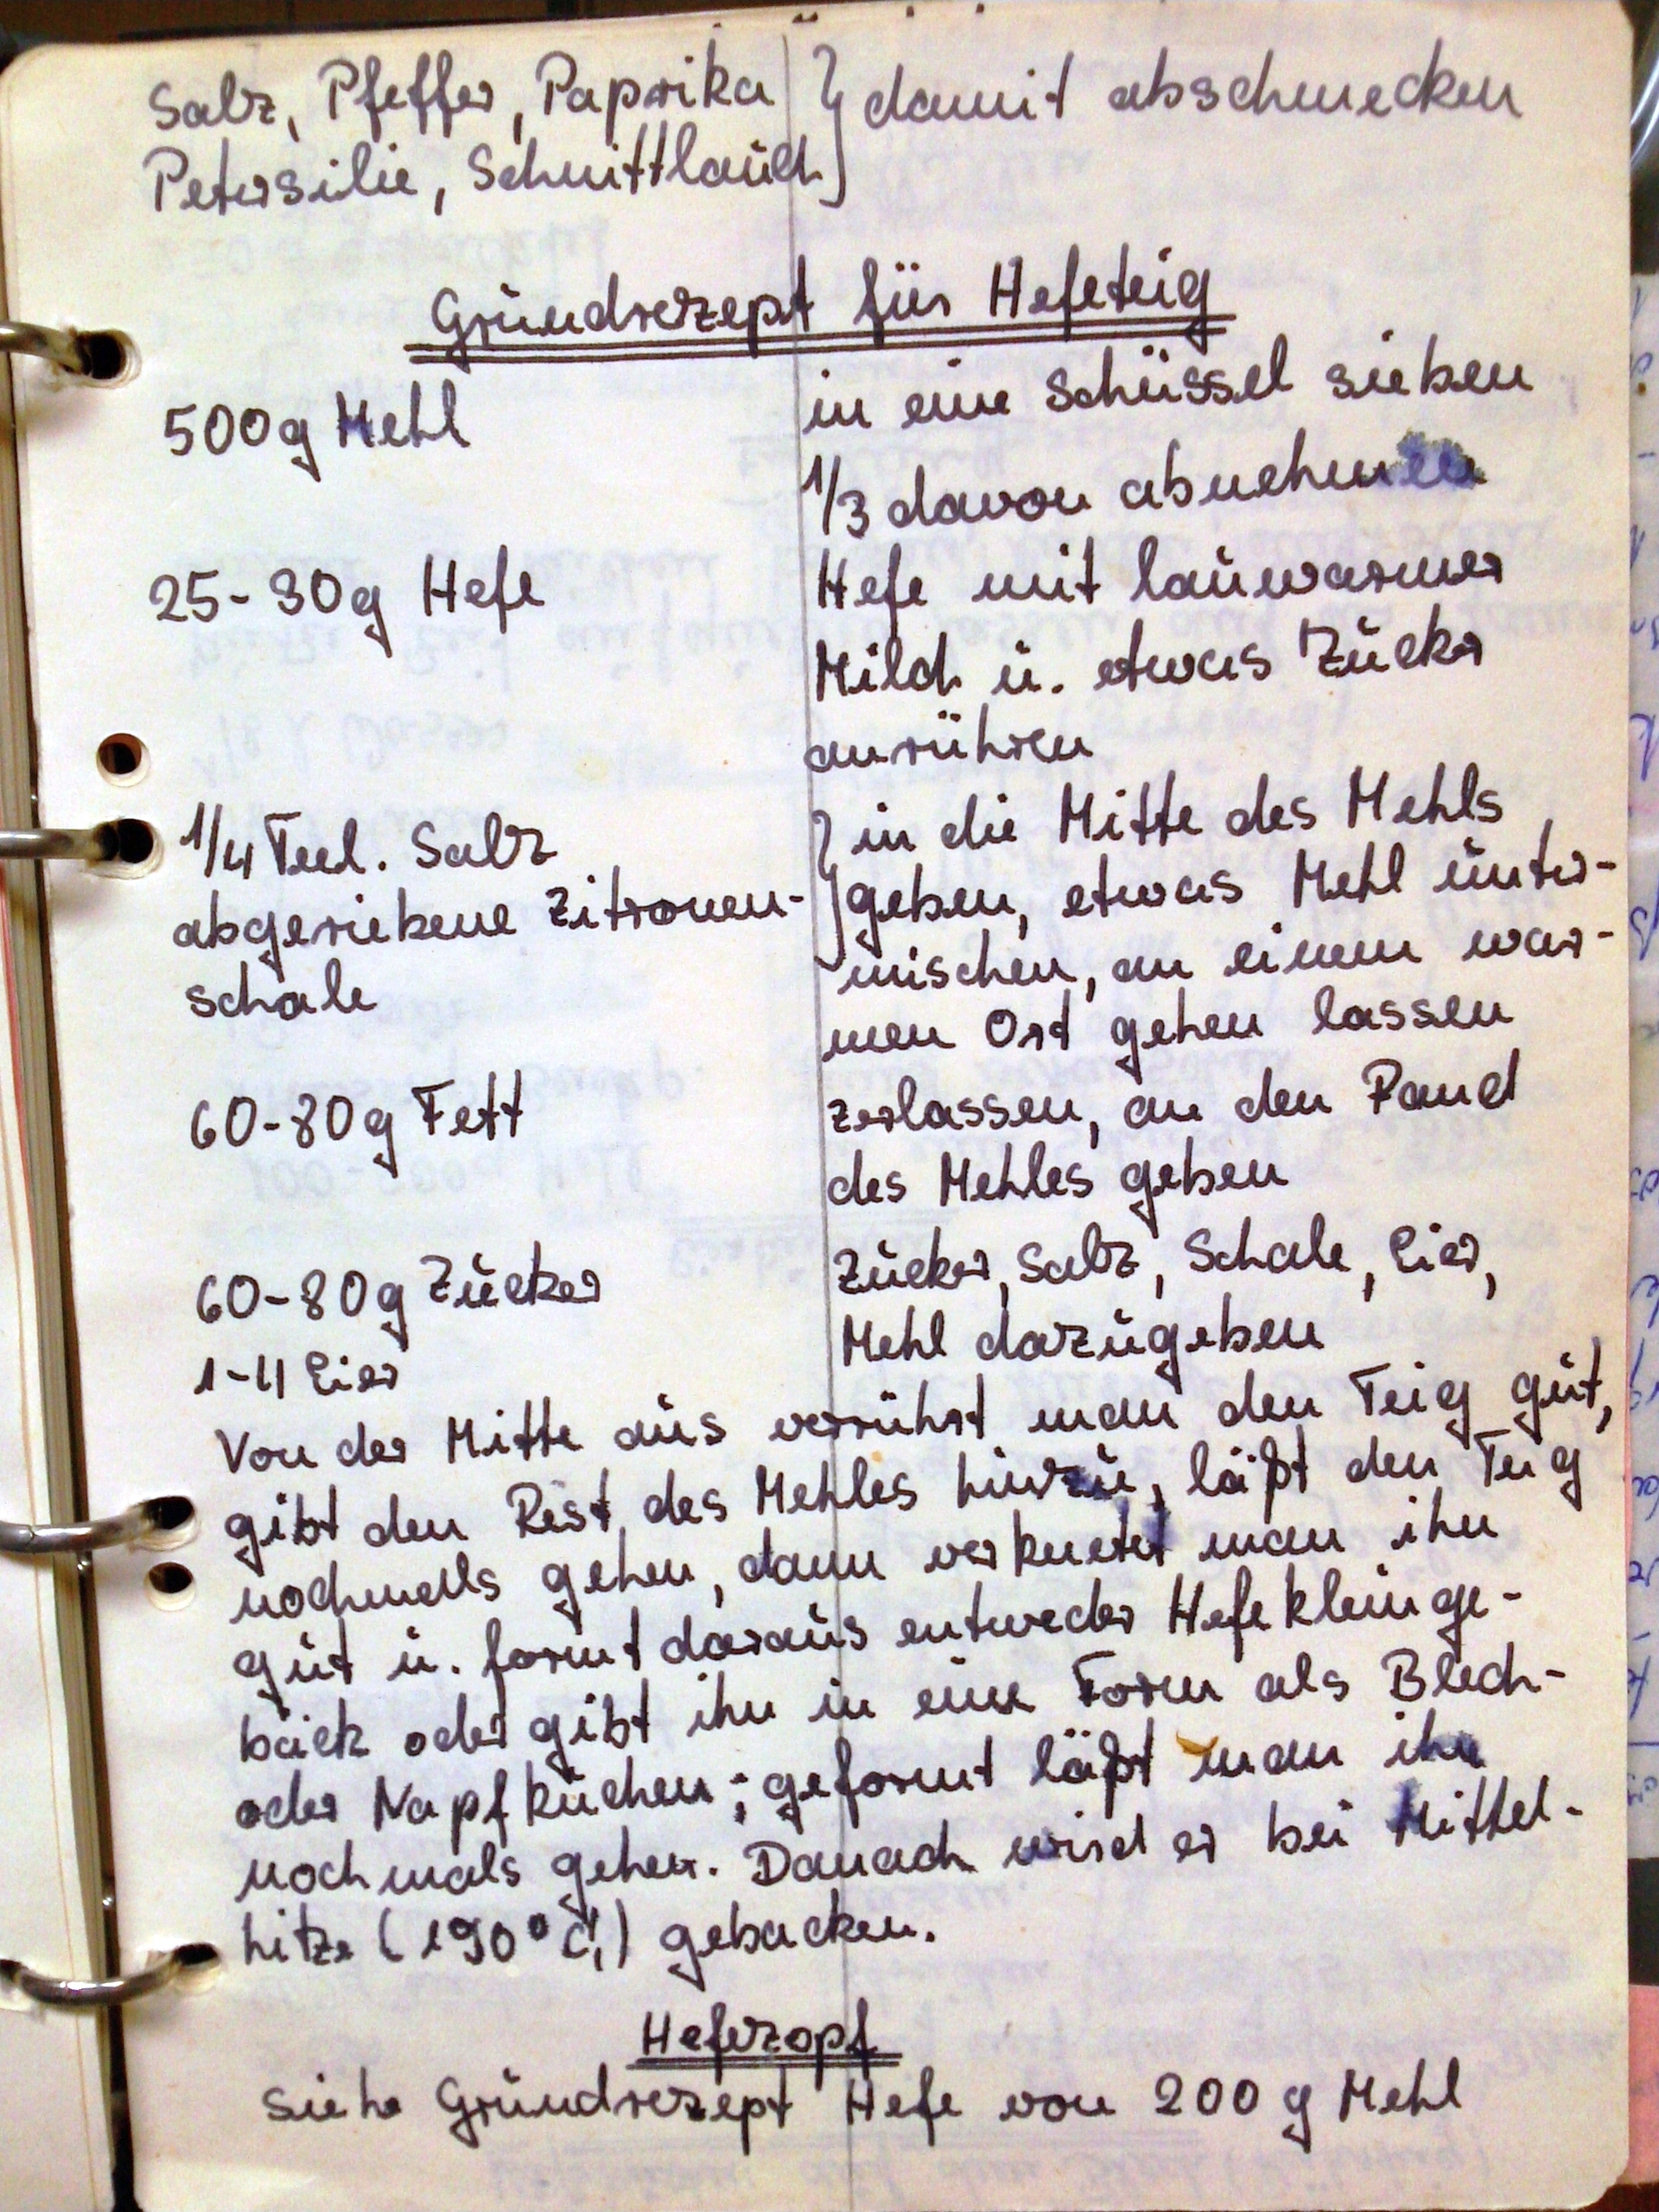 Salz, Pfeffer, Paprika } damit abschmecken
Petersilie, Schnittlauch
Grundrezept für Hefeteig
500g Mehl in eine Schüssel sieben
1/3 davon abnehmen
25-30g Hefe Hefe mit lauwarmer
Milch u. etwas Zucker
anrühren
1/4 Teel. Salz } in die Mitte des Mehls
abgeriebene Zitronen- geben, etwas Mehl unter-
schale mischen, an einem war-
men Ort gehen lassen
60-80g Fett zerlassen, an den Rand
des Mehles geben
60-80g Zucker Zucker, Salz, Schale, Eier,
1-4 Eier Mehl dazugeben
Von der Mitte aus verrührt man den Teig gut,
gibt den Rest des Mehles hinzu, läßt den Teig
nochmals gehen, dann verknetet man ihn
gut u. formt daraus entweder Hefekleinge-
bäck oder gibt ihn in eine Form als Blech-
oder Napfkuchen; geformt läßt man ihn
nochmals gehen. Danach wird er bei Mittel-
hitze (190°C) gebacken.
Hefezopf
siehe Grundrezept Hefe von 200 g Mehl